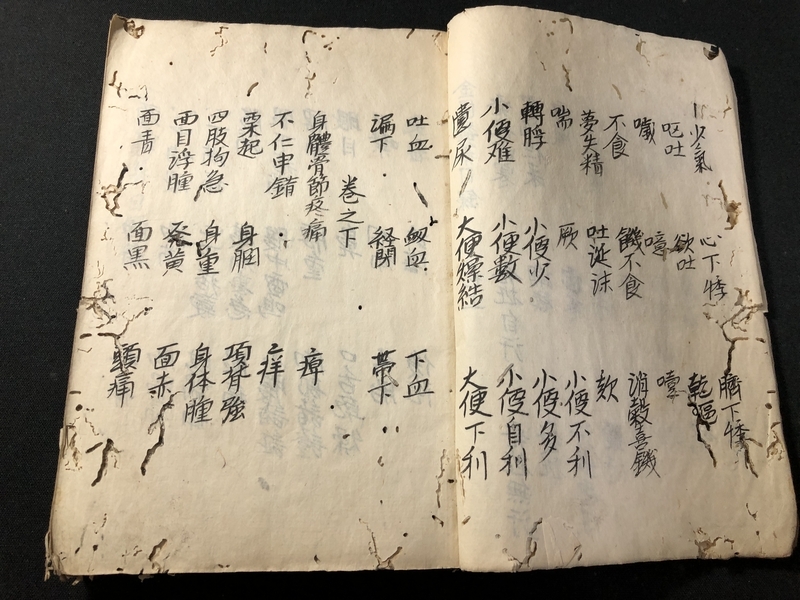 少氣 心下悸 臍下悸
呕吐 欲吐 乾嘔
噦 噫 嚏
不食 饑不食 消穀喜饑
夢失精 吐涎沫 欬
喘 厥 小便不利
轉脬 小便少 小便多
小便难 小便數 小便自利
遺尿 大便燥結 大便下利
吐血 衂血 下血
漏下 経閉 帯下
卷之下
身體骨節疼痛 痺
不仁 痒
栗起 身胭 項脊強
四股拘急 身重 身体腫
面目浮腫 発黄 面赤
面青 面黒 頭痛